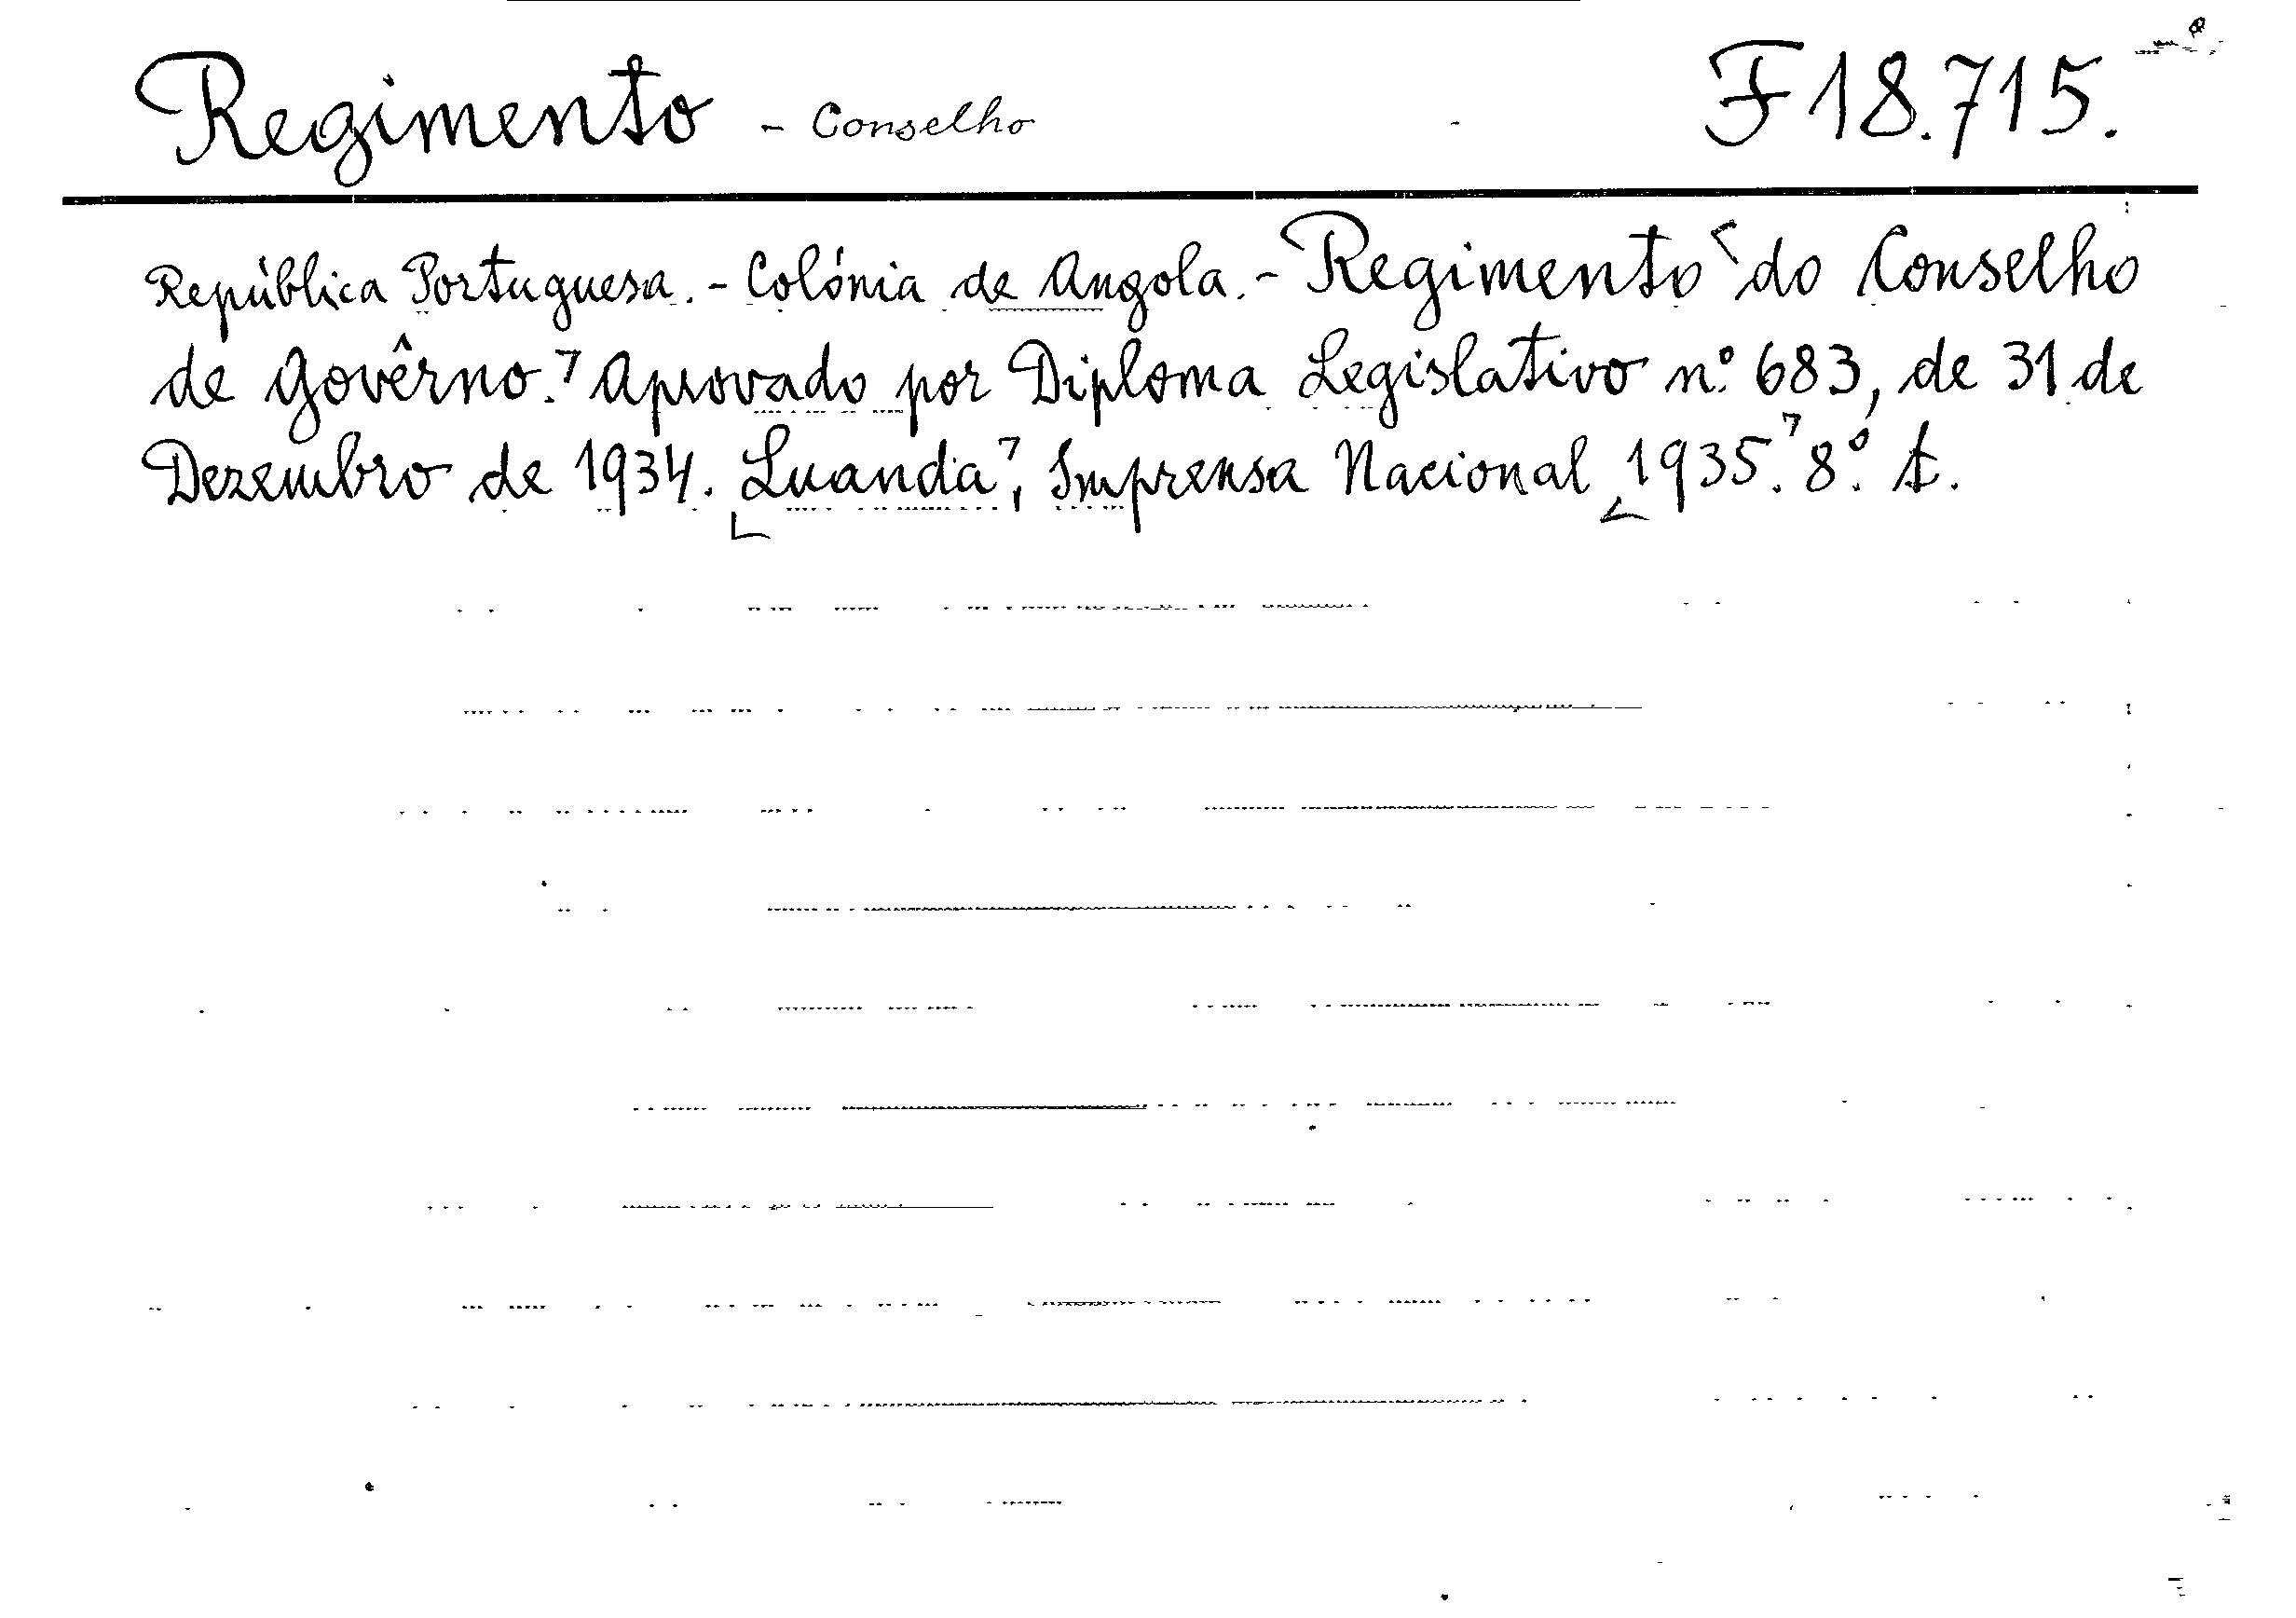 Regimento - Conselho F 18.715.
República Portuguesa. - Colónia de Angola. - Regimento do Conselho
de Govêrno. Aprovado por Diploma Legislativo n.º 683, de 31 de
Dezembro de 1934. Luanda, Imprensa Nacional 1935. 8.º A.